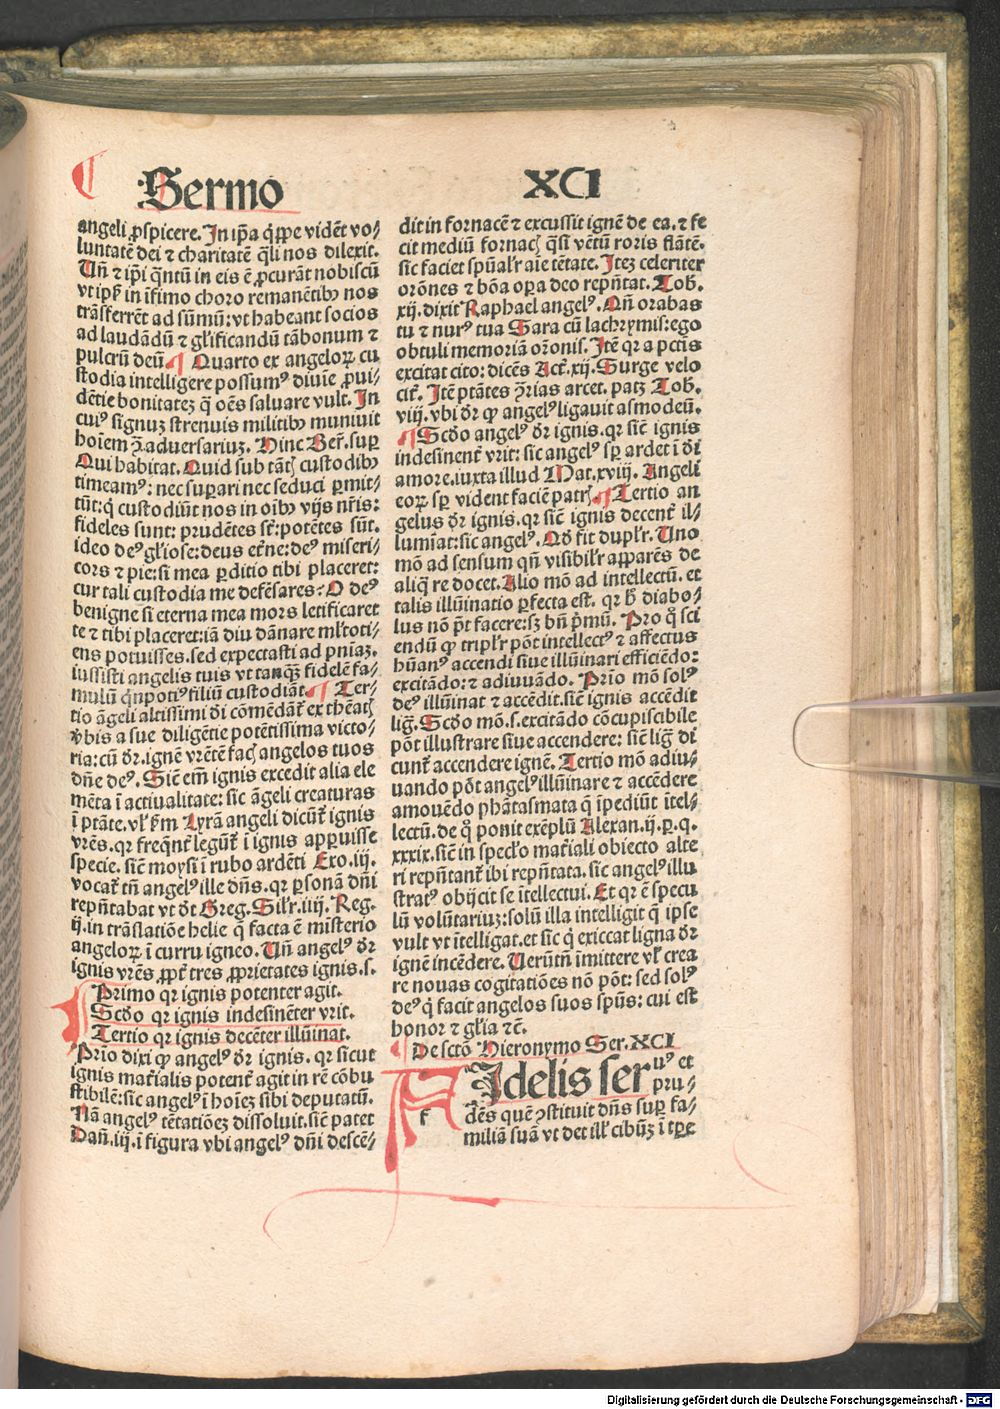 Sermo XCI
angeli ꝓspicere. In ip̄a q̇ꝓpe vidēt vo⸗
luntatē dei ⁊ charitatē q̄li nos dilexit.
Un̄ ⁊ ip̄i q̄ntū in eis ē ꝓcurāt nobiscū
vt ipī in īfimo choro remanētibꝰ nos
trāsferrēt ad sūmū: vt habeant socios
ad laudādū ⁊ gl̄ificandū tābonum ⁊
pulcrū deū. ¶ Quarto ex angeloꝝ cu
stodia intelligere possumꝰ diuīe ꝓui⸗
dētie bonitatez q̄ oēs saluare vult. In
cuiꝰ signuz strenuis militibꝰ muniuit
hoīem ꝯ̄ aduersariuz. Hinc Ber̄. suꝑ
Qui habitat. Quid sub tātꝭ custodibꝰ
timeamꝰ: nec suꝑari nec seduci ꝑmit⸗
tūt: q̇ custodiūt nos in oībꝰ vijs nr̄is:
fideles sunt: prudētes st̄: potētes sūt.
ideo deꝰ gl̄iose: deus et̄ne: deꝰ miseri⸗
cors ⁊ pie: si mea ꝑditio tibi placeret:
cur tali custodia me defēsares? O deꝰ
benigne si eterna mea mors letificaret
te ⁊ tibi placeret: iā diu dānare ml̄toti⸗
ens potuisses. sed expectasti ad pn̄iaz.
iussisti angelis tuis vt tanq̄ꝫ fidelē fa⸗
mulū q̇npotiꝰ filiū custodiāt. ¶ Ter⸗
tio āgeli altissimi di cōmēdāt̄ ex thēatꝭ
v̄bis a sue diligētie potētissima victo⸗
ria: cū dr̄. ignē vrētē facꝭ angelos tuos
dn̄e deꝰ. Sic̄ em̄ ignis excedit alia ele
mēta ī actiualitate: sic āgeli creaturas
ī ptāte. vl̄ ẜm Lyrā angeli dicūt̄ ignis
vrēs. qr freq̄nt̄ legūt̄ ī ignis apparuisse
specie. sic̄ moysi ī rubo ardēti Exo. iij.
vocat̄ tn̄ angelꝰ ille dn̄s. qr ꝑsonā dn̄i
repn̄tabat vt dt̄ Greg. Sil̄r. iiij. Reg.
ij. in trāslatiōe helie q̄ facta ē misterio
angeloꝝ ī curru igneo. Un̄ angelꝰ dr̄
ignis vrēs ꝓpt̄ tres ꝓprietates ignis. s.
Primo qr ignis potenter agit.
Scd̄o qr ignis indesinēter vrit.
Tertio qr ignis decēter illūinat.
Prīo dixi ꝙ angelꝰ dr̄ ignis. qr sicut
ignis mat̄ialis potent̄ agit in rē cōbu
stibilē: sic angelꝰ ī hoīez sibi deputatū.
Nā angelꝰ tētatiōez dissoluit. sic̄ patet
Dan̄. iij. ī figura vbi angelꝰ dn̄i descē⸗
dit in fornacē ⁊ excussit ignē de ea. ⁊ fe
cit mediū fornacꝭ q̄si vētū roris flātē.
sic faciet spūal̄r aīe tētate. Itez celeriter
orōnes ⁊ bōa oꝑa deo repn̄tat. Tob̄.
xij. dixit Raphael angelꝰ. Qn̄ orabas
tu ⁊ nurꝰ tua Sara cū lachrymis: ego
obtuli memoriā orōnis. Itē qr a pctīs
excitat cito: dicēs Act̄. xij. Surge velo
cit̄. Itē ptātes ꝯ̄rias arcet. patꝫ Tob̄.
viij. vbi dr̄ ꝙ angelꝰ ligauit asmodeū.
¶ Scd̄o angelꝰ dr̄ ignis. qr sic̄ ignis
indesinent̄ vrit: sic angelꝰ sꝑ ardet ī di
amore. iuxta illud Mat. xviij. Angeli
eoꝝ sꝑ vident faciē patrꝭ. ¶ Tertio an
gelus dr̄ ignis. qr sic̄ ignis decent̄ il⸗
lumīat: sic angelꝰ. Qd̄ fit dupl̄r. Uno
mō ad sensum qn̄ visibil̄r apparēs de
aliq̄ re docet. Alio mō ad intellectū. et
talis illūinatio ꝑfecta est. qr b̄ diabo⸗
lus nō pōt facere: sꝫ bn̄ p̄mū. Pro qͦ sci
endū ꝙ tripl̄r pōt intellectꝰ ⁊ affectus
hūanꝰ accendi siue illūinari efficiēdo:
excitādo: ⁊ adiuuādo. Prīo mō solꝰ
deꝰ illūinat ⁊ accēdit. sic̄ ignis accēdit
lig̅. Scd̄o mō. s. excitādo cōcupiscibile
pōt illustrare siue accendere: sic̄ lig̅ di
cunt̄ accendere ignē. Tertio mō adiu⸗
uando pōt angelꝰ illūinare ⁊ accēdere
amouēdo phātasmata q̄ īpediūt ītel⸗
lectū. de qͦ ponit exēplū Alexan. ij. p. q.
xxxix. sic̄ in specl̄o mat̄iali obiecto alte
ri repn̄tant̄ ibi repn̄tata. sic angelꝰ illu
stratꝰ obijcit se ītellectui. Et qr ē specu
lū volūtariuz: solū illa intelligit q̄ ipse
vult vt ītelligat. et sic q̇ exiccat ligna dr̄
ignē incēdere. Uerūtn̄ īmittere vl̄ crea
re nouas cogitatiōes nō pōt: sed solꝰ
deꝰ q̇ facit angelos suos spūs: cui est
honor ⁊ gl̄ia ⁊c̄.
¶ De sctō Hieronymo Ser. XCI
Fidelis seruꝰ et
f pru⸗
dēs quē ꝯstituit dn̄s suꝑ fa⸗
miliā suā vt det ill̄ cibūꝫ ī tꝑe
Digitalisierung gefördert durch die Deutsche Forschungsgemeinschaft - DFG